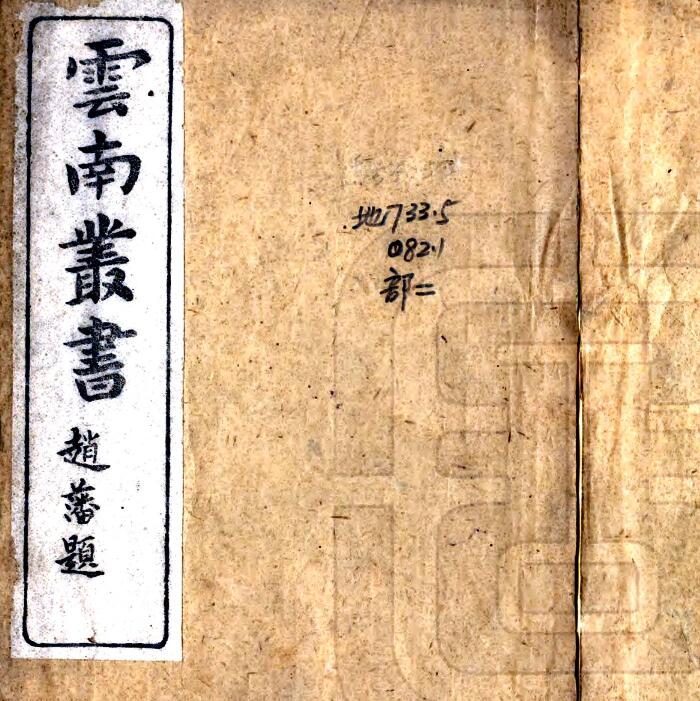 雲南叢書
趙藩題
地733.5
082.1
部二